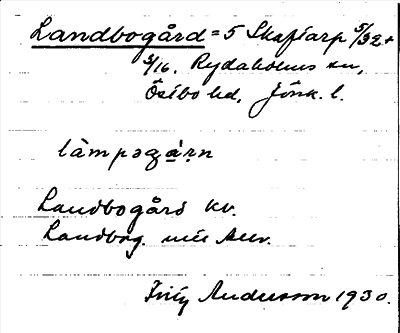 Landbogård = 5 Skaftarp 5/32 +
5/16. Rydaholms sn,
Östbo hd, Jönk. l.
làmpəgá̠ṛn
Landbogård kv.
Landbog. utie
Fritz Andersson 1930.